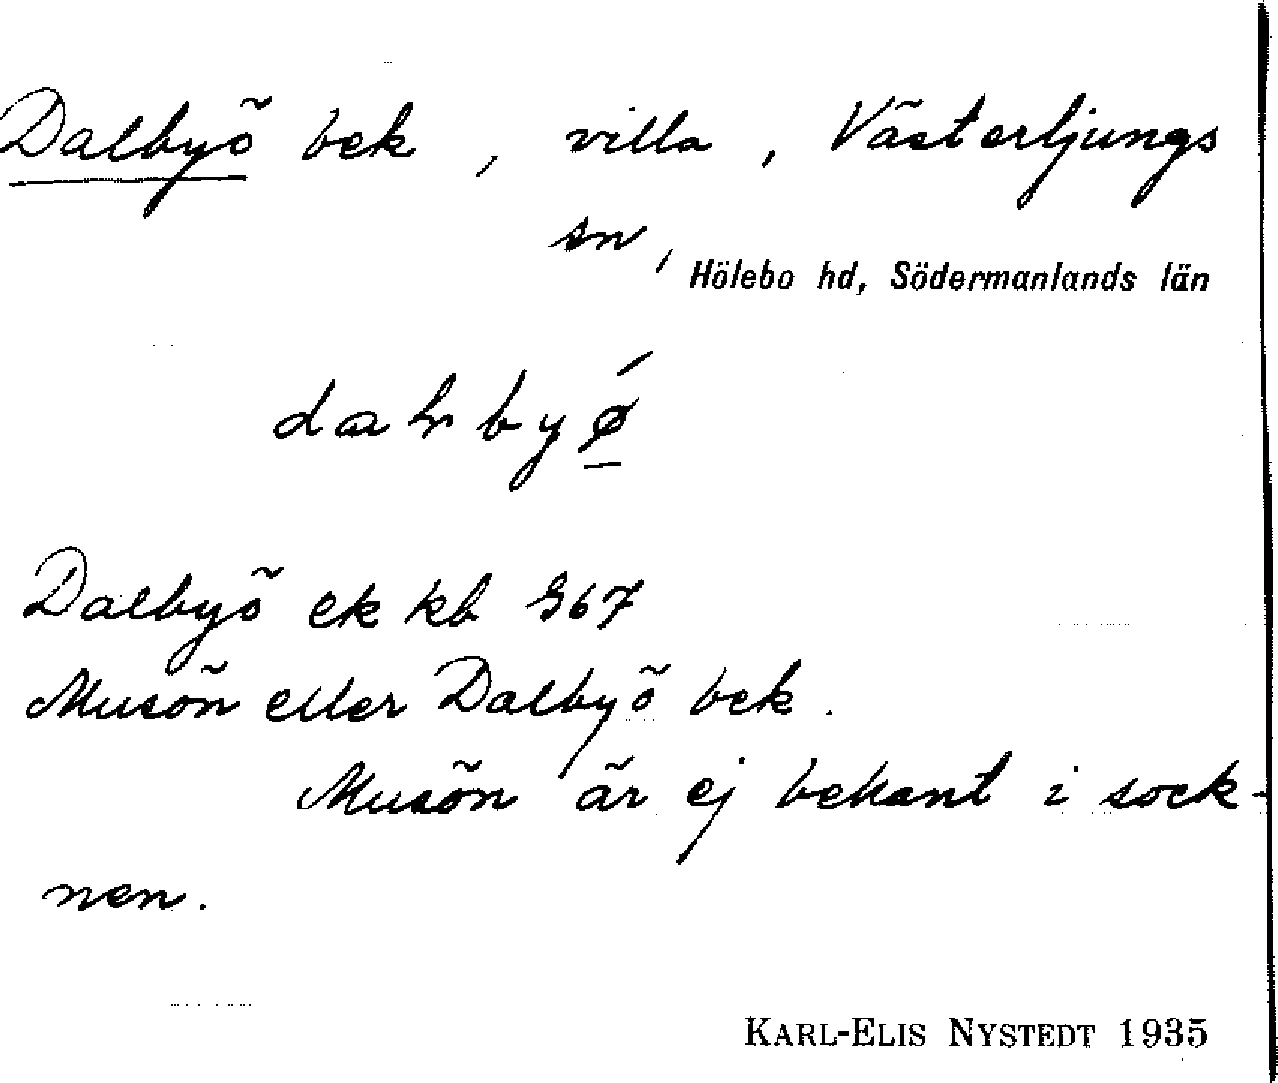 Dalbyö bek, villa, Västerljungs
sn,
Hölebo hd, Södermanlands län
dalbyǿ
Dalbyö ek kb 967
Musön eller Dalbyö bek.
Musön är ej bekant i sock-
nen.
KARL-ELIS NYSTEDT 1935